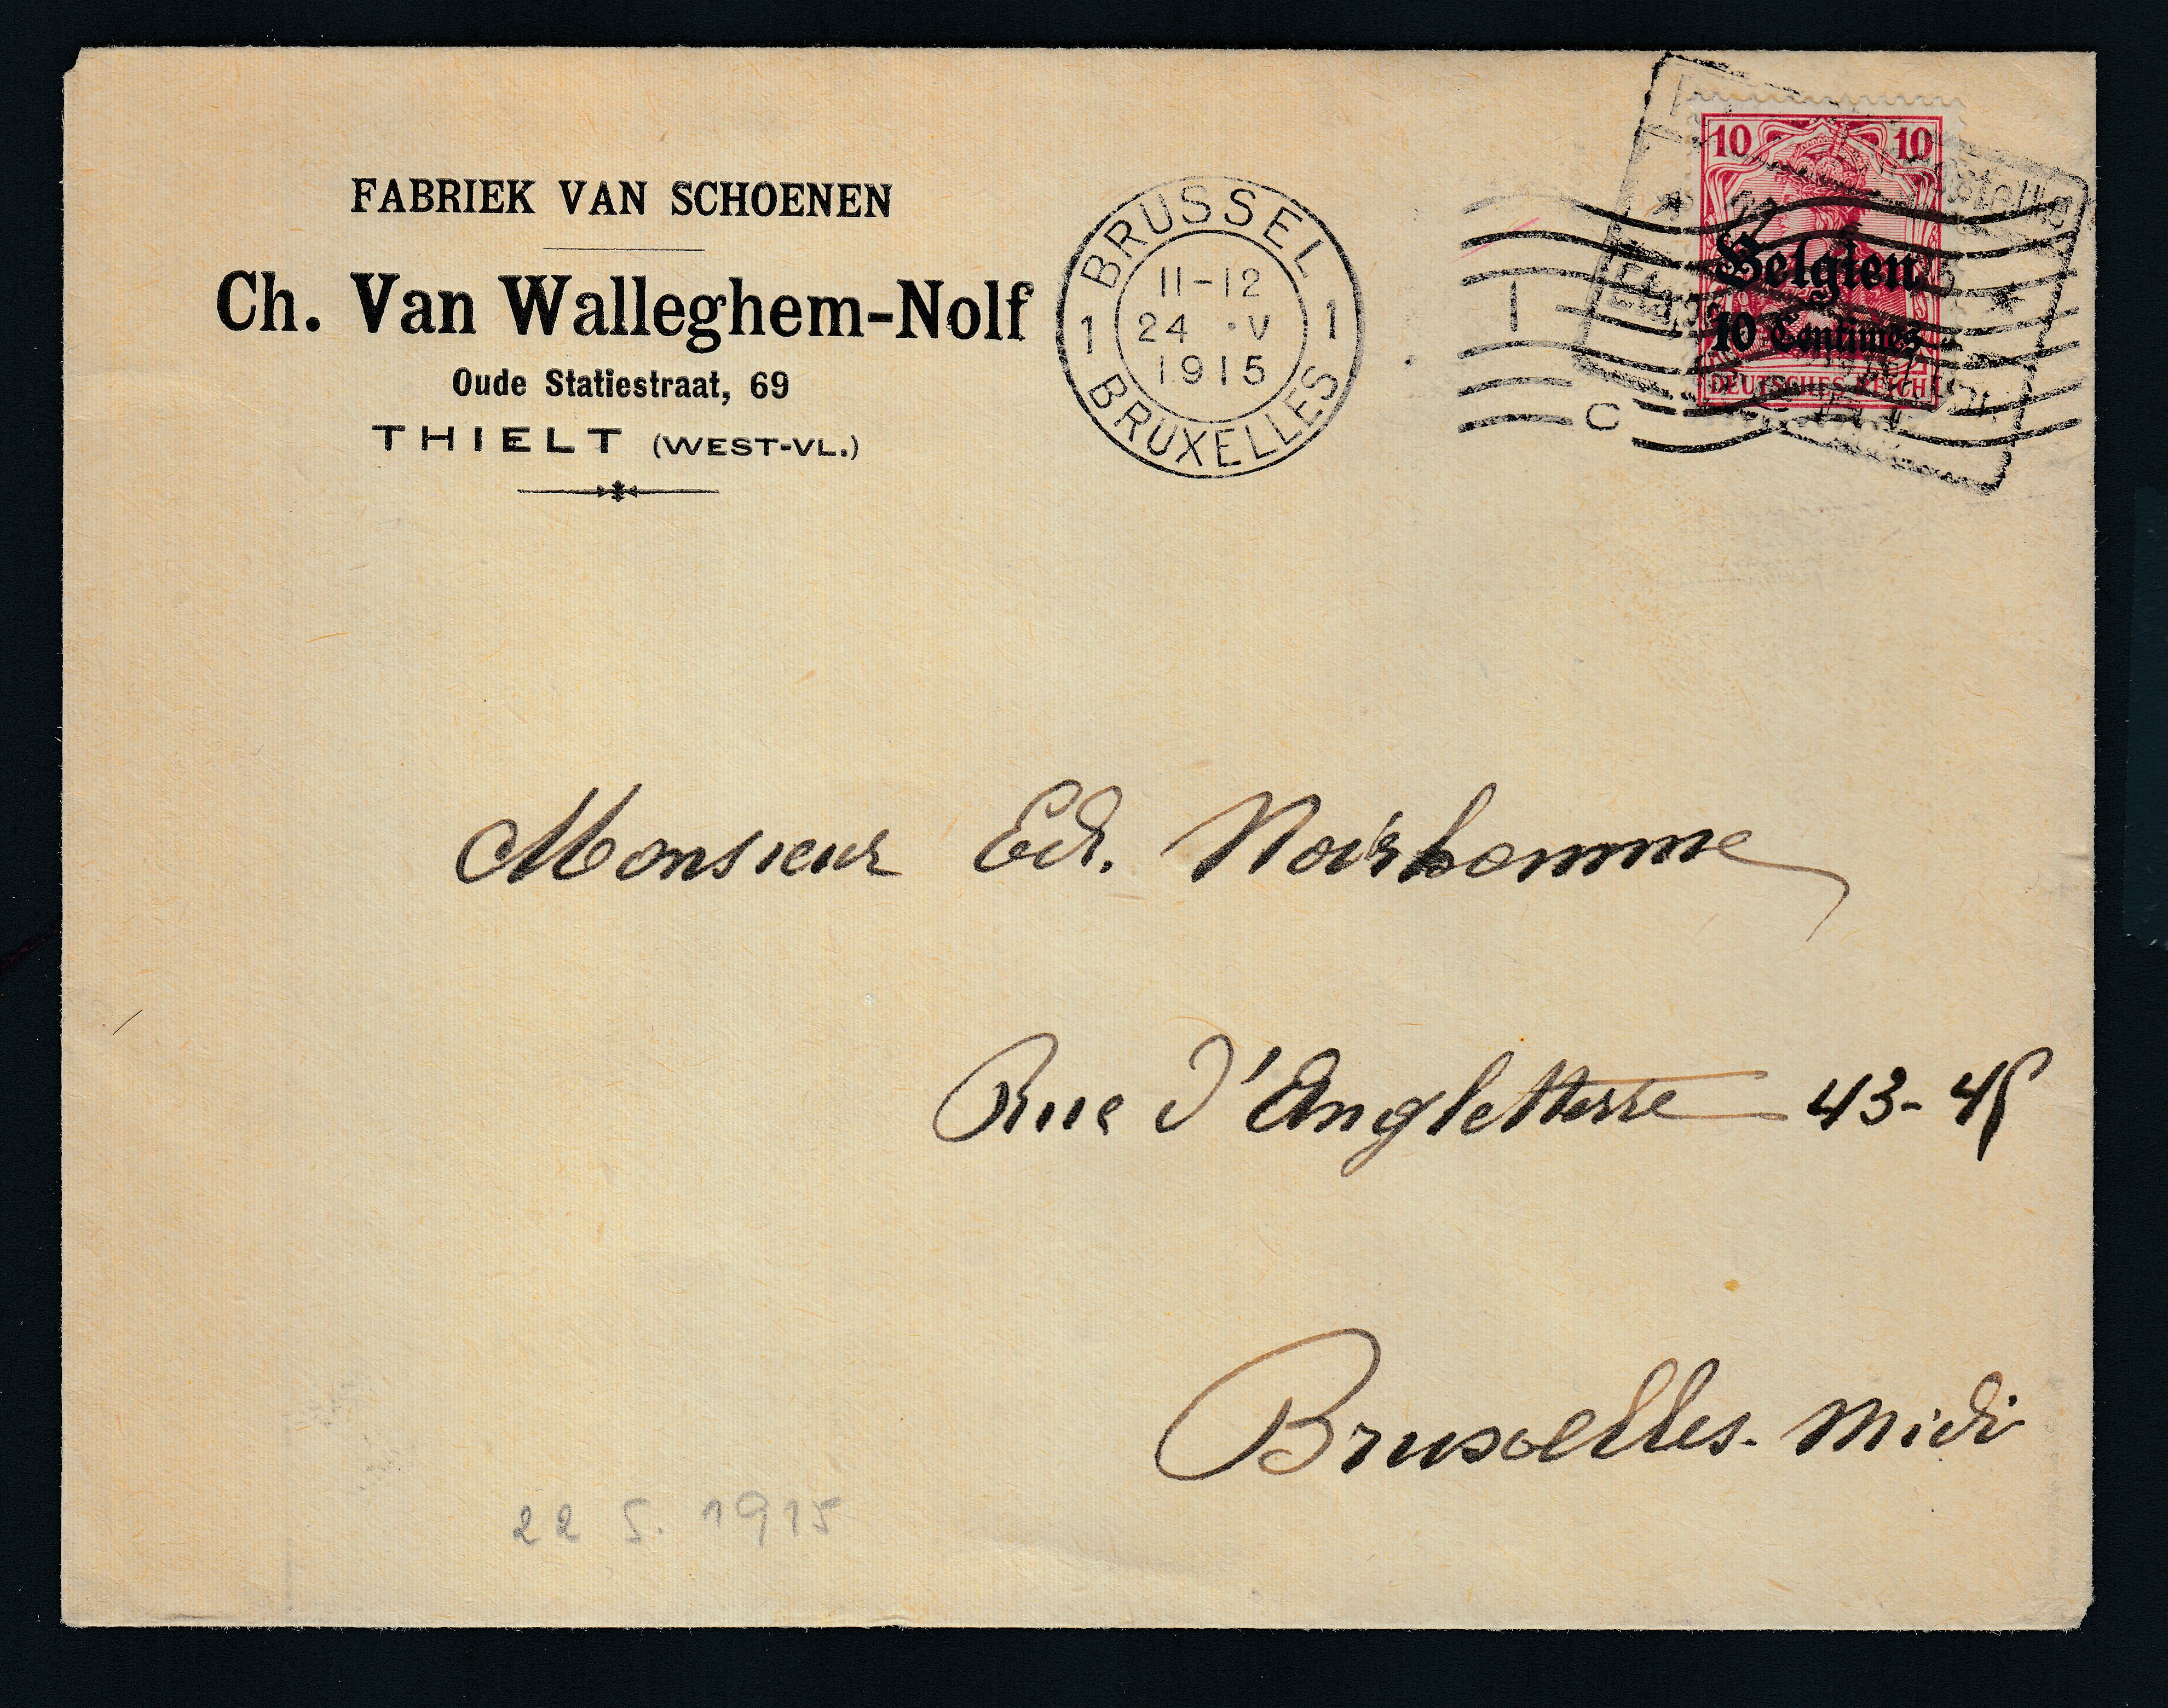 FABRIEK VAN SCHOENEN
Ch. Van Walleghem-Nolf
Oude Statiestraat, 69
THIELT (WEST-VL.)
BRUSSEL
11-12
1 24 ·V 1
1915
BRUXELLES
1
C
10 10
Belgien
10 Centimes
DEUTSCHES REICH
Monsieur Ed. Noirhomme
Rue d'Angletterre 43-45
Bruxelles-Midi
22 5. 1915